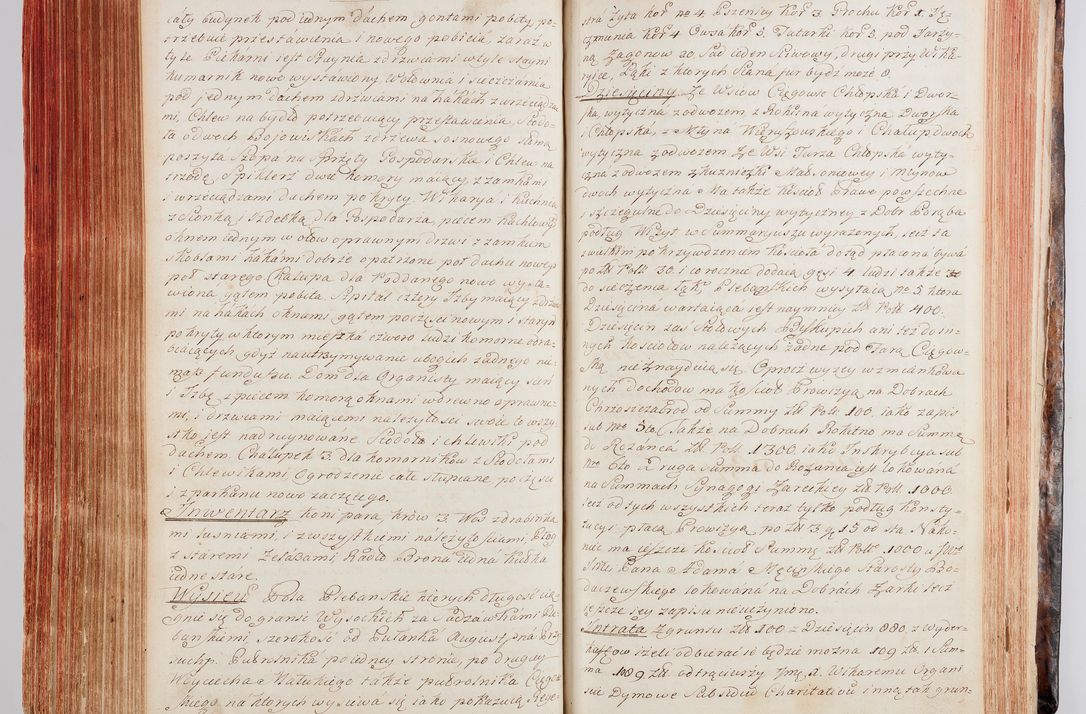 cały budynek pod iednym dachem gontami pobity, po-
trzebuie przestawienia i nowego pobicia zaraz w
tyle Piekarni iest Staynia z drzwiami w tyle Stayni
kurnik nowo wystawiony Wołownia i sieczkarnia
pod jednym dachem z drzwiami na hakach z wrzeciądza-
mi, Chlew na bydło potrzebuiący przestawienia Stodo-
ła o dwoch Bojowiskach z drzewa sosnowego Słomą
poszyta Szopa na Sprzęty Gospodarskie i Chlew na
trzodę, Spiklerz dwie komory maiący, z zamkami
i wrzeciądzami dachem pokryty. Wikarya i kuchnia
zsionką i Izdebką dla Gospodarza piecem kachlowym
oknem iednym w ołow oprawnym drzwi z zamkiem
skoblami hakami dobrze opatrzone poł dachu nowego
poł starego. Chałupa dla Poddanego nowo wysta-
wiona gątem pobita. Szpital cztery Izby maiący z drzwia
mi na hakach oknami gątem poczęści nowym i starym
pokryty w ktorym mieszka czworo ludzi komorne obra-
biaiących gdyż na utrzymywanie ubogich żadnego nie-
masz funduszu. Dom dla Organisty maiący sień
i Izbę z piecem komorą oknami w drewno oprawne-
mi, i drzwiami maiącemi należytości swoie to wszy-
stko jest nadruynowane Stodoła i chlewiki pod
dachem. Chałupek 3. dla komornikow z Stodołami
i Chlewikami Ogrodzenie całe słupiane po części
i z parkanu nowo zaczętego.
Inwentarz koni para, krow 3. Woz z drabinka
mi lusniami, i z wszystkiemi należytosciami Pług
z staremi Zelazami, Radło Brona iedna kulka
iedne stare.
Wysiew Pola Plebanskie ktorych długość cią-
gnie się do granic Wysockich za Sadzawkami Ple-
bąnskiemi, szerokość od August. pna Przy-
suchp. Pułrolnika po iedney stronie, po drugiey
Woyciecha Matuskiego także pułrolnika Cięgo-
skiego na ktorych wysiewa się iako pokazuią Reye-
stra Zyta kor: No 4. Pszenicy Kor: 3. Grochu Kor: 1. Ję-
czmienia Kor: 4 Owsa kor: 5. Tatarki kor: 3. pod Jarzy-
ną Zagonow 20. Sad ieden Sliwowy, drugi przy Wika-
ryice, Łąki z ktorych Siana fur bydź może 8.
Dziesięciny Ze Wsiow Cięgowic Chłopska i Dwor-
ska, wytyczna z odwozem z Rokitna wytyczna Dworska
i Chłopska, z Młyna i Chałup dwoch
wytyczna z odwozem Ze Wsi Turza Chłopska wyty-
czna z odwozem z Kuzniczki i Młynow
dwoch wytyczna Ma także kosciół Prawo powszechne
i szczegulne do Dziesięciny wytyczney z Dobr Poręba
podług Wizyt w Summaryuszu wyrażonych, lecz ta
z wielkim pokrzywdzeniem kościoła dotąd płacona bywa
po Zł: Poll: 30. i corocznie dodaią gęsi 4. ludzi także
do sieczenia łąk Plebańskich wysyłaią No 5. ktora
Dziesięcina wartaiąca iest naymniey Zł: Poll: 400.
Dziesięcin zaś Stołowych Biskupich ani też do in-
nych kościołow należących żadne pod Farą Cięgow-
ską nieznayduią się. Oprocz wyżey wzmiankowa
nych dochodow ma kościoł Prowizyą na Dobrach
Chrzoszczabrod od Summy Zł: Poll: 100. iako zapis
sub No 5to Także na Dobrach Rokitno ma Summę
do Rożańca Zł: Poll: 1300. iako Inskrybcya sub
No 6to Druga Summa do Rożańca iest lokowana
na Summach Synagogi Zareckiey Zł: Poll: 1000.
lecz od tych wszystkich teraz tylko podług konsty-
tucyi płacą Prowizyą po Zł: 3 g. 15 od sta. Nako-
niec ma ieszcze kościoł Summę Zł: Poll: 1000 u Jmci
Pana Adama Męcinskiego Starosty Bo-
lokowaną na Dobrach Zarki lecz
ieszcze iey zapisu nieuczyniono.
Intrata Z gruntu Zł: 500 z Dziesięcin 880. z Wyder-
kaffow iżeli odbierać ie będzie można 109 Zł: Sum-
ma 1489 Zł: odtrąciwszy Jmć. X. Wikaremu Organi
scie Dymowe Subsidium Charitativum i inną tak grun-